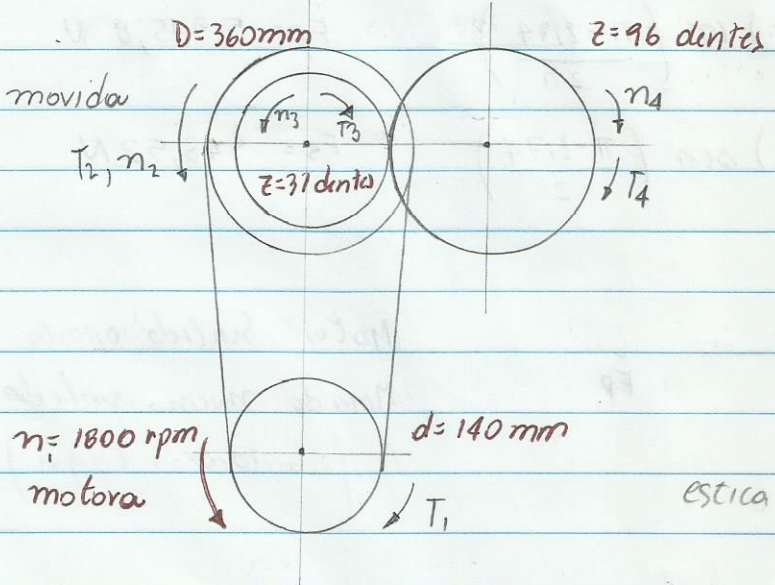 D=360mm
z=96 dentes
movida
n3
T3
n4
T2, n2
z=37 dentes
T4
n1=1800 rpm
d=140 mm
motora
T1
estica